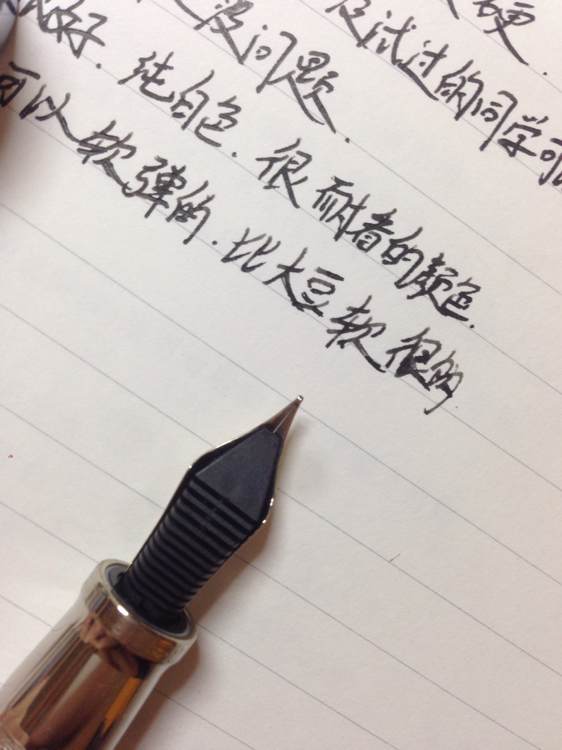 硬.
没问题. 没试过的同学可
好. 纯白色. 很耐看的颜色.
可以软弹的. 比大豆软很多